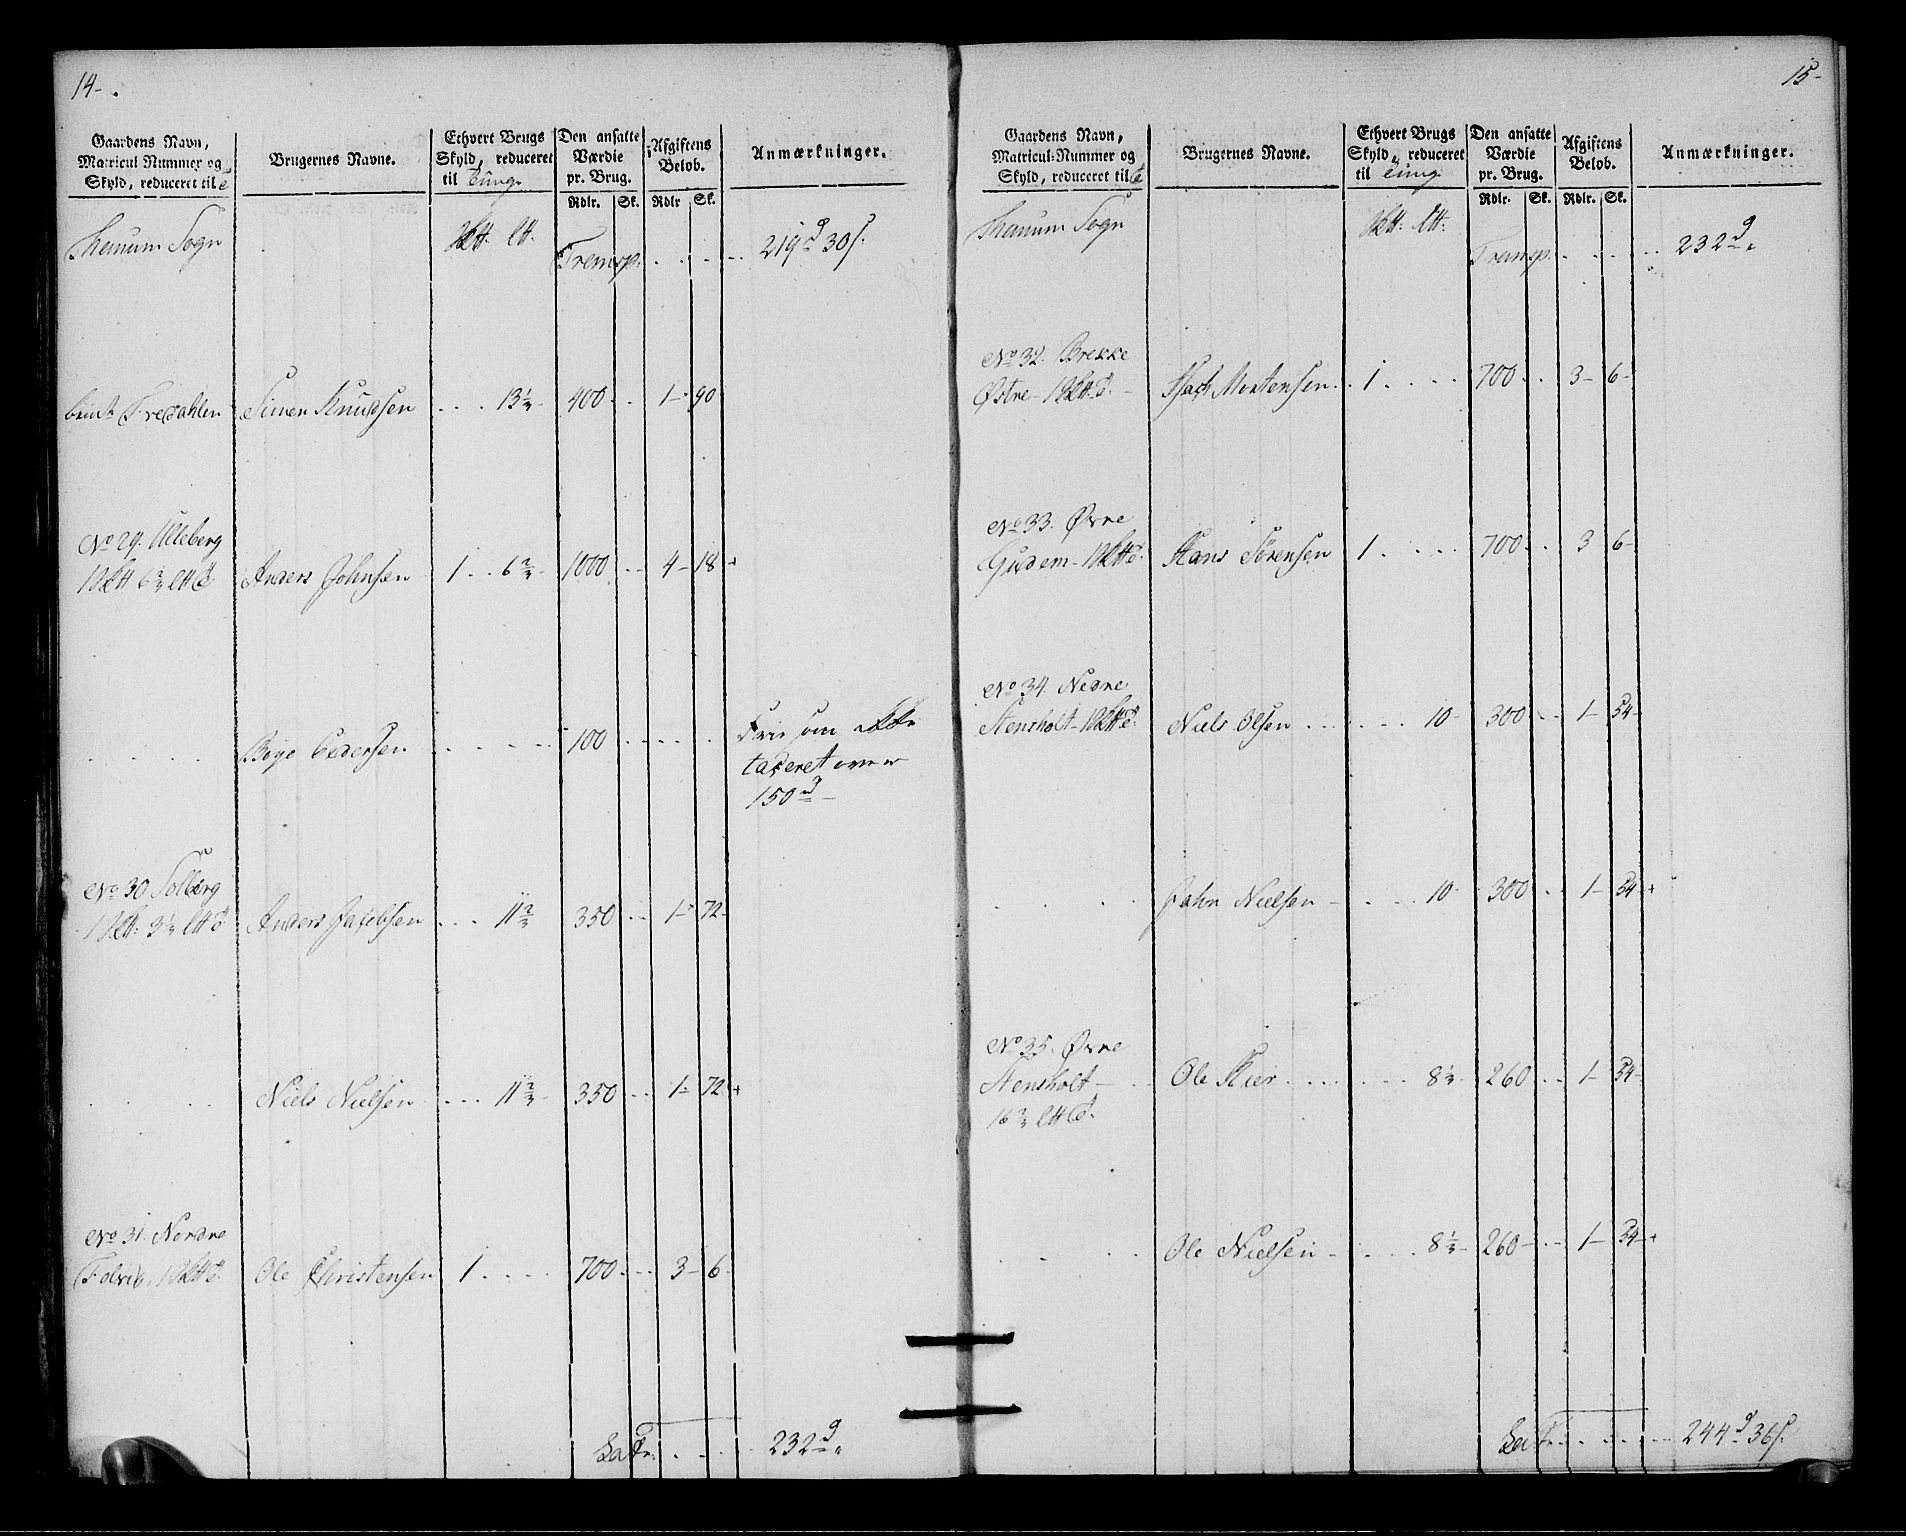 14-
Gaardens Navn, Matricul Nummer og Skyld, reduceret til
Brugernes Navne.
Ethvert Brugs Skyld, reduceret til Tunge
Den ansatte Værdie pr. Brug.
Afgiftens Beløb.
Anmærkninger.
Rdlr. Sk. Rdlr Sk.
Hanum Sogn
Transp. . . . . 219 d 30 s.
Simen Knudsen . . . 13 1/3 - 400 . . 1 - 90
No 29. Ulleberg
Anders Johnsen 1 . . 6 2/3 - 1000 . . 4 - 18 +
Pedersen . . . . . 100 . . . . . Frie som ikke
taxeret over
150 d -
No 30 Solberg
Anders Jacobsen . . . 11 2/3 350 . . 1 - 72 -
Niels Nielsen . . . 11 2/3 - 350 . . 1 - 72 +
No 31. Nordre
Ole Christensen 1 . . . . 700 . . . 3 - 6 -
Lat . . . . 232 d "
15-
Gaardens Navn, Matricul-Nummer og Skyld, reduceret til
Brugernes Navne.
Ethvert Brugs Skyld, reduceret til Tung
Den ansatte Værdie pr. Brug.
Afgiftens Beløb.
Anmærkninger.
Rdlr. Sk. Rdlr. Sk.
Hanum Sogn
Transp. . . . . 232 d "
No 32. Brekke
Østre
Mortensen . . 1 . . . . 700 . . 3 - 6 -
No 33. Øvre
Hans Sørensen 1 . . . . 700 . . 3 6 -
No 34. Nedre
Stensholt
Niels Olsen . . . . . . 10 - 300 . . 1 - 54 -
John Nielsen - . . . 10 - 300 . . 1 - 54 +
No 35. Øvre
Stensholt
16 2/3
Ole . . . . . . . 8 1/3 - 260 . . 1 - 54 -
Ole Nielsen - . . . 8 1/3 - 260 - . . 1 - 54 +
Lat . . . . . 244 d 36 s.